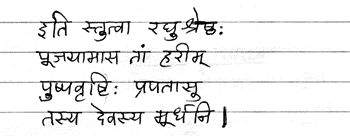 इति स्तुत्वा रघुश्रेष्ठः
पूजयामास तां हरीम्
पुष्पवृष्टिः प्रपतासु
तस्य देवस्य मूर्धनि।